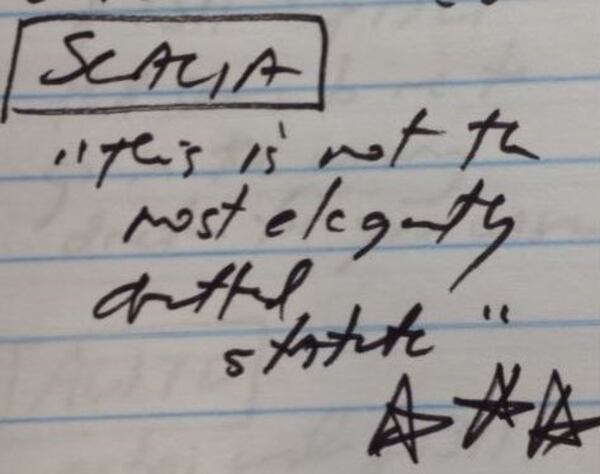 SCALIA
"this is not the
most elegantly
drafted
statute"